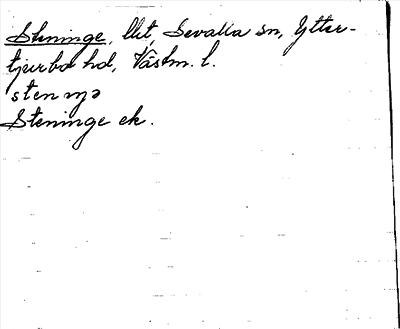 Steninge, llit, Sevalla sn, Ytter-
tjurbo hd, Västm. l.
stenɪŋə
Steninge ek.